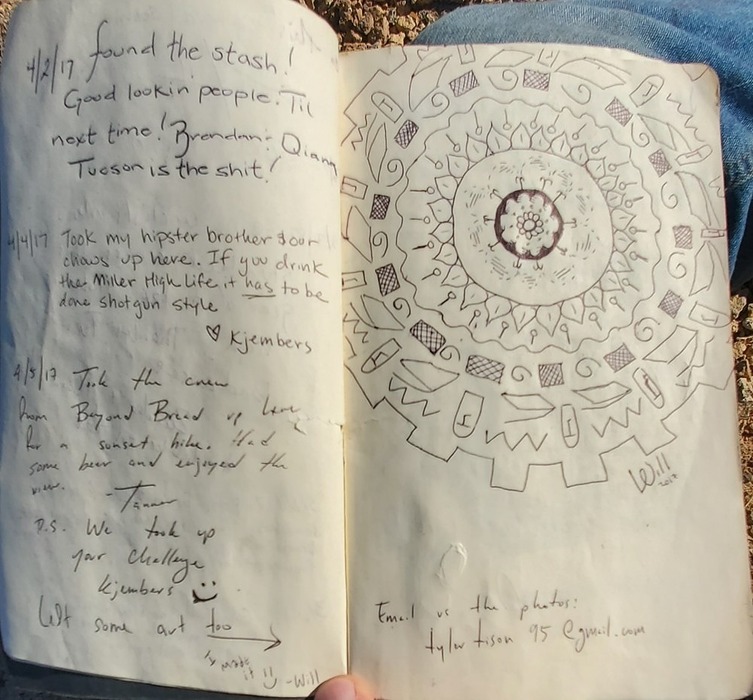 4/2/17 found the stash!
Good lookin' people. Til
next time! Brendan: Qiana
Tucson is the shit!
4/4/17 Took my hipster brother & our
chaws up here. If you drink
the Miller High Life it has to be
done shotgun style
♡ Kjembers
4/5/17 Took the crew
from Beyond Bread up here
for a sunset hike. Had
some beer and enjoyed the
view.
-Tanner
P.S. We took up
your challenge
Kjembers
Left some art too
made
it -Will
Will
2017
Email us the photos:
tylertison95@gmail.com